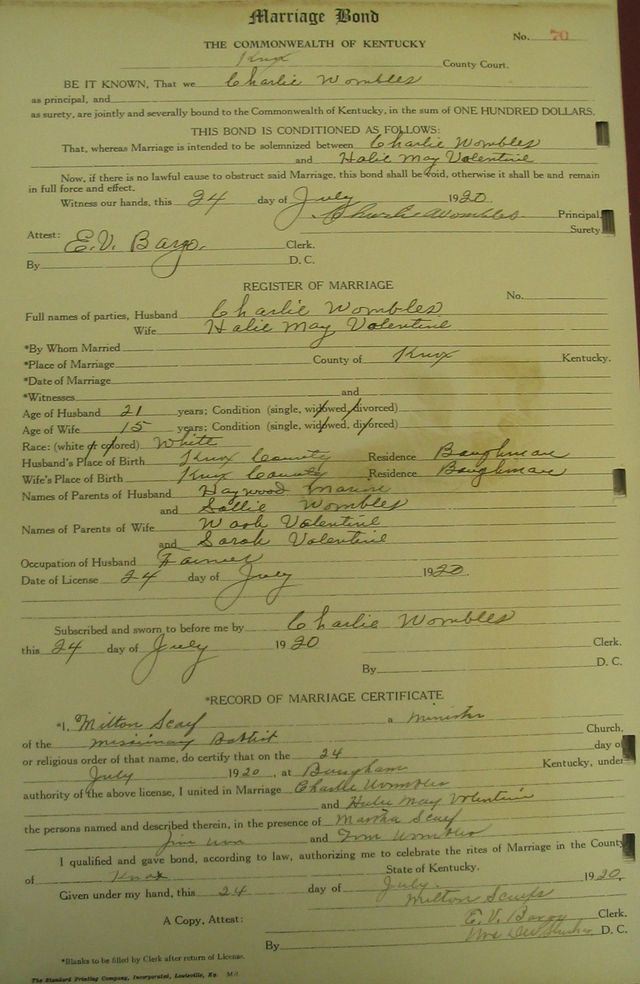 Marriage Bond
No. 70
THE COMMONWEALTH OF KENTUCKY
Knox County Court.
BE IT KNOWN, That we Charlie Wombles
as principal, and
as surety, are jointly and severally bound to the Commonwealth of Kentucky, in the sum of ONE HUNDRED DOLLARS.
THIS BOND IS CONDITIONED AS FOLLOWS:
That, whereas Marriage is intended to be solemnized between Charlie Wombles
and Halie May Valentine
Now, if there is no lawful cause to obstruct said Marriage, this bond shall be void, otherwise it shall be and remain
in full force and effect.
Witness our hands, this 24 day of July 1920
Charlie Wombles Principal
Surety
Attest: E. V. Bargo. Clerk.
By D. C.
REGISTER OF MARRIAGE
No.
Full names of parties, Husband Charlie Wombles
Wife Halie May Valentine
*By Whom Married
*Place of Marriage County of Knox Kentucky.
*Date of Marriage
*Witnesses and
Age of Husband 21 years; Condition (single, widowed, divorced)
Age of Wife 15 years; Condition (single, widowed, divorced)
Race: (white or colored) White
Husband's Place of Birth Knox County Residence Baughman
Wife's Place of Birth Knox County Residence Baughman
Names of Parents of Husband Haywood
and Sallie Wombles
Names of Parents of Wife Wash Valentine
and Sarah Valentine
Occupation of Husband Farmer
Date of License 24 day of July 1920.
Subscribed and sworn to before me by Charlie Wombles
this 24 day of July 1920 Clerk.
By D. C.
*RECORD OF MARRIAGE CERTIFICATE
*I, Milton Scalf a minister
of the missinary Babtist Church,
or religious order of that name, do certify that on the 24 day of
July 1920, at Baugham Kentucky, under
authority of the above license, I united in Marriage Charlie Wombles
and Halie May Valentine
the persons named and described therein, in the presence of Martha Scalf
Jim and Tom Wombles
I qualified and gave bond, according to law, authorizing me to celebrate the rites of Marriage in the County
of Knox State of Kentucky.
Given under my hand, this 24 day of July. 1920,
Milton
A Copy, Attest: E. V. Bargo Clerk.
By D. C.
*Blanks to be filled by Clerk after return of License.
The Standard Printing Company, Incorporated, Louisville, Ky.